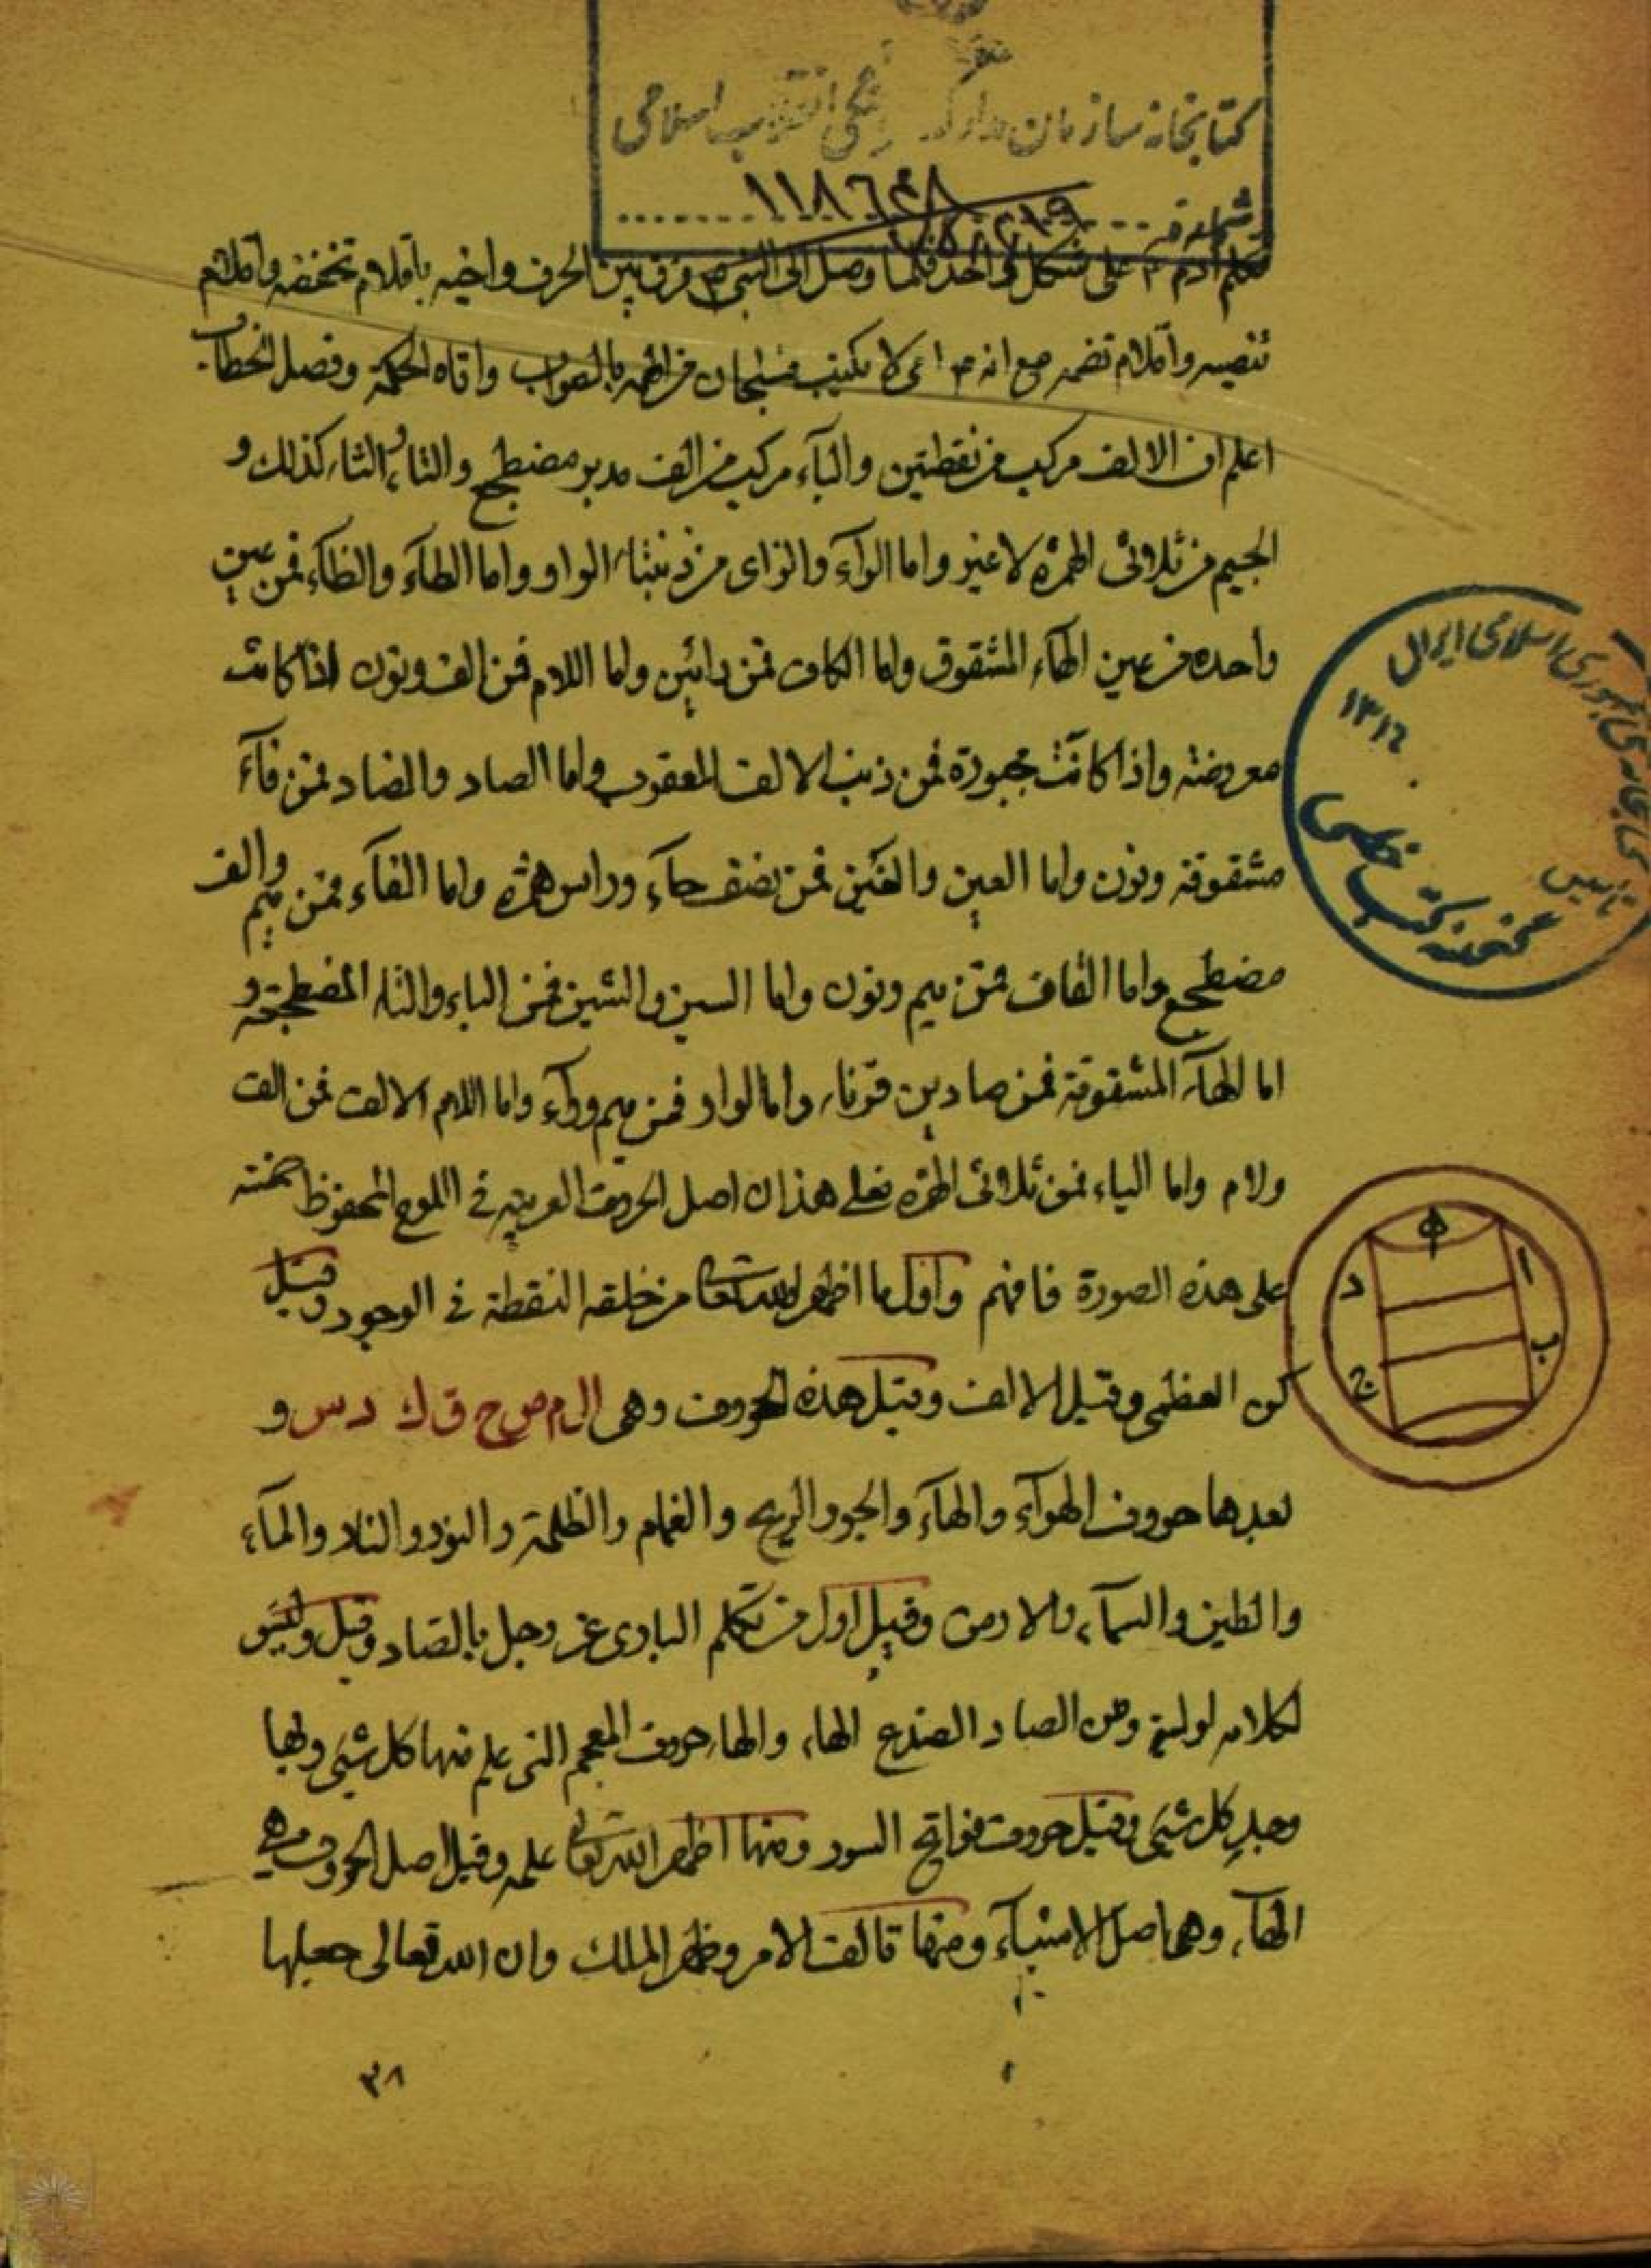 كتابخانه سازمان مدارك فرهنگى انقلاب اسلامى
شماره ثبت ١١٨٦٤٨
آدم ع على شكل واحد فلما وصل الى النبى ص فرق بين الحرف واخيه باقلام تخفضه واقلام
تنصبه واقلام تضمه مع انه ص امى لا يكتب فسبحان من الهمه بالصواب واتاه الحكمة وفصل الخطاب
اعلم ان الالف مركب من نقطتين والباء مركب من الف مدبر مضطجع والتاء والثاء كذلك و
الجيم من ثلاثى الهمزة لا غير واما الراء والزاى من ذنبتا الواو واما الطاء والظاء فمن عين
واحده من عين الهاء المشقوق واما الكاف فمن دائين واما اللام فمن الف ونون اذا كانت
معروضته واذا كانت مجهورة فمن ذنب الالف المعقوب واما الصاد والضاد فمن فآء
مشقوقة ونون واما العين والغين فمن نصف حآء وراس همزة واما الفآء فمن ميم والف
مضطجع واما القاف فمن ميم ونون واما السين والشين فمن الباء والتاء المضطجعة و
اما الهآء المشقوقة فمن صادين قرنا واما الواو فمن ميم ورآء واما اللام الالف فمن الف
ولام واما الياء فمن ثلاثى الهمزة فعلى هذا ان اصل الحروف العربية فى اللوح المحفوظ خمسة
على هذه الصورة فافهم واول ما اظهر الله تعالى من خلقه النقطة فى الوجود وقيل
كن العظمى وقيل الالف وقيل هذه الحروف وهى ال م ص ح ق ك د س و
بعدها حروف الهوآء والهآء والجو والريح والغمام والظلمة والنور والنار والمآء
والطين والسمآء والارض وقيل اول من تكلم البارى عز وجل بالصاد وقيل وليس
لكلامه اولية ومن الصاد الهاء والهاء حروف المعجم التى علم منها كل شئ ولها
وجد كل شئ وقيل حروف فواتح السور ومنها اظهر الله تعالى علمه وقيل اصل الحروف هى
الهآء وهى اصل الاشيآء ومنها تالف الامر وظهر الملك وان الله تعالى جعلها
٣٨
ه
ا
د
ب
ج
جمهورى اسلامى ايران
١٣١٢
تاسيس
گنجينه كتب خطى